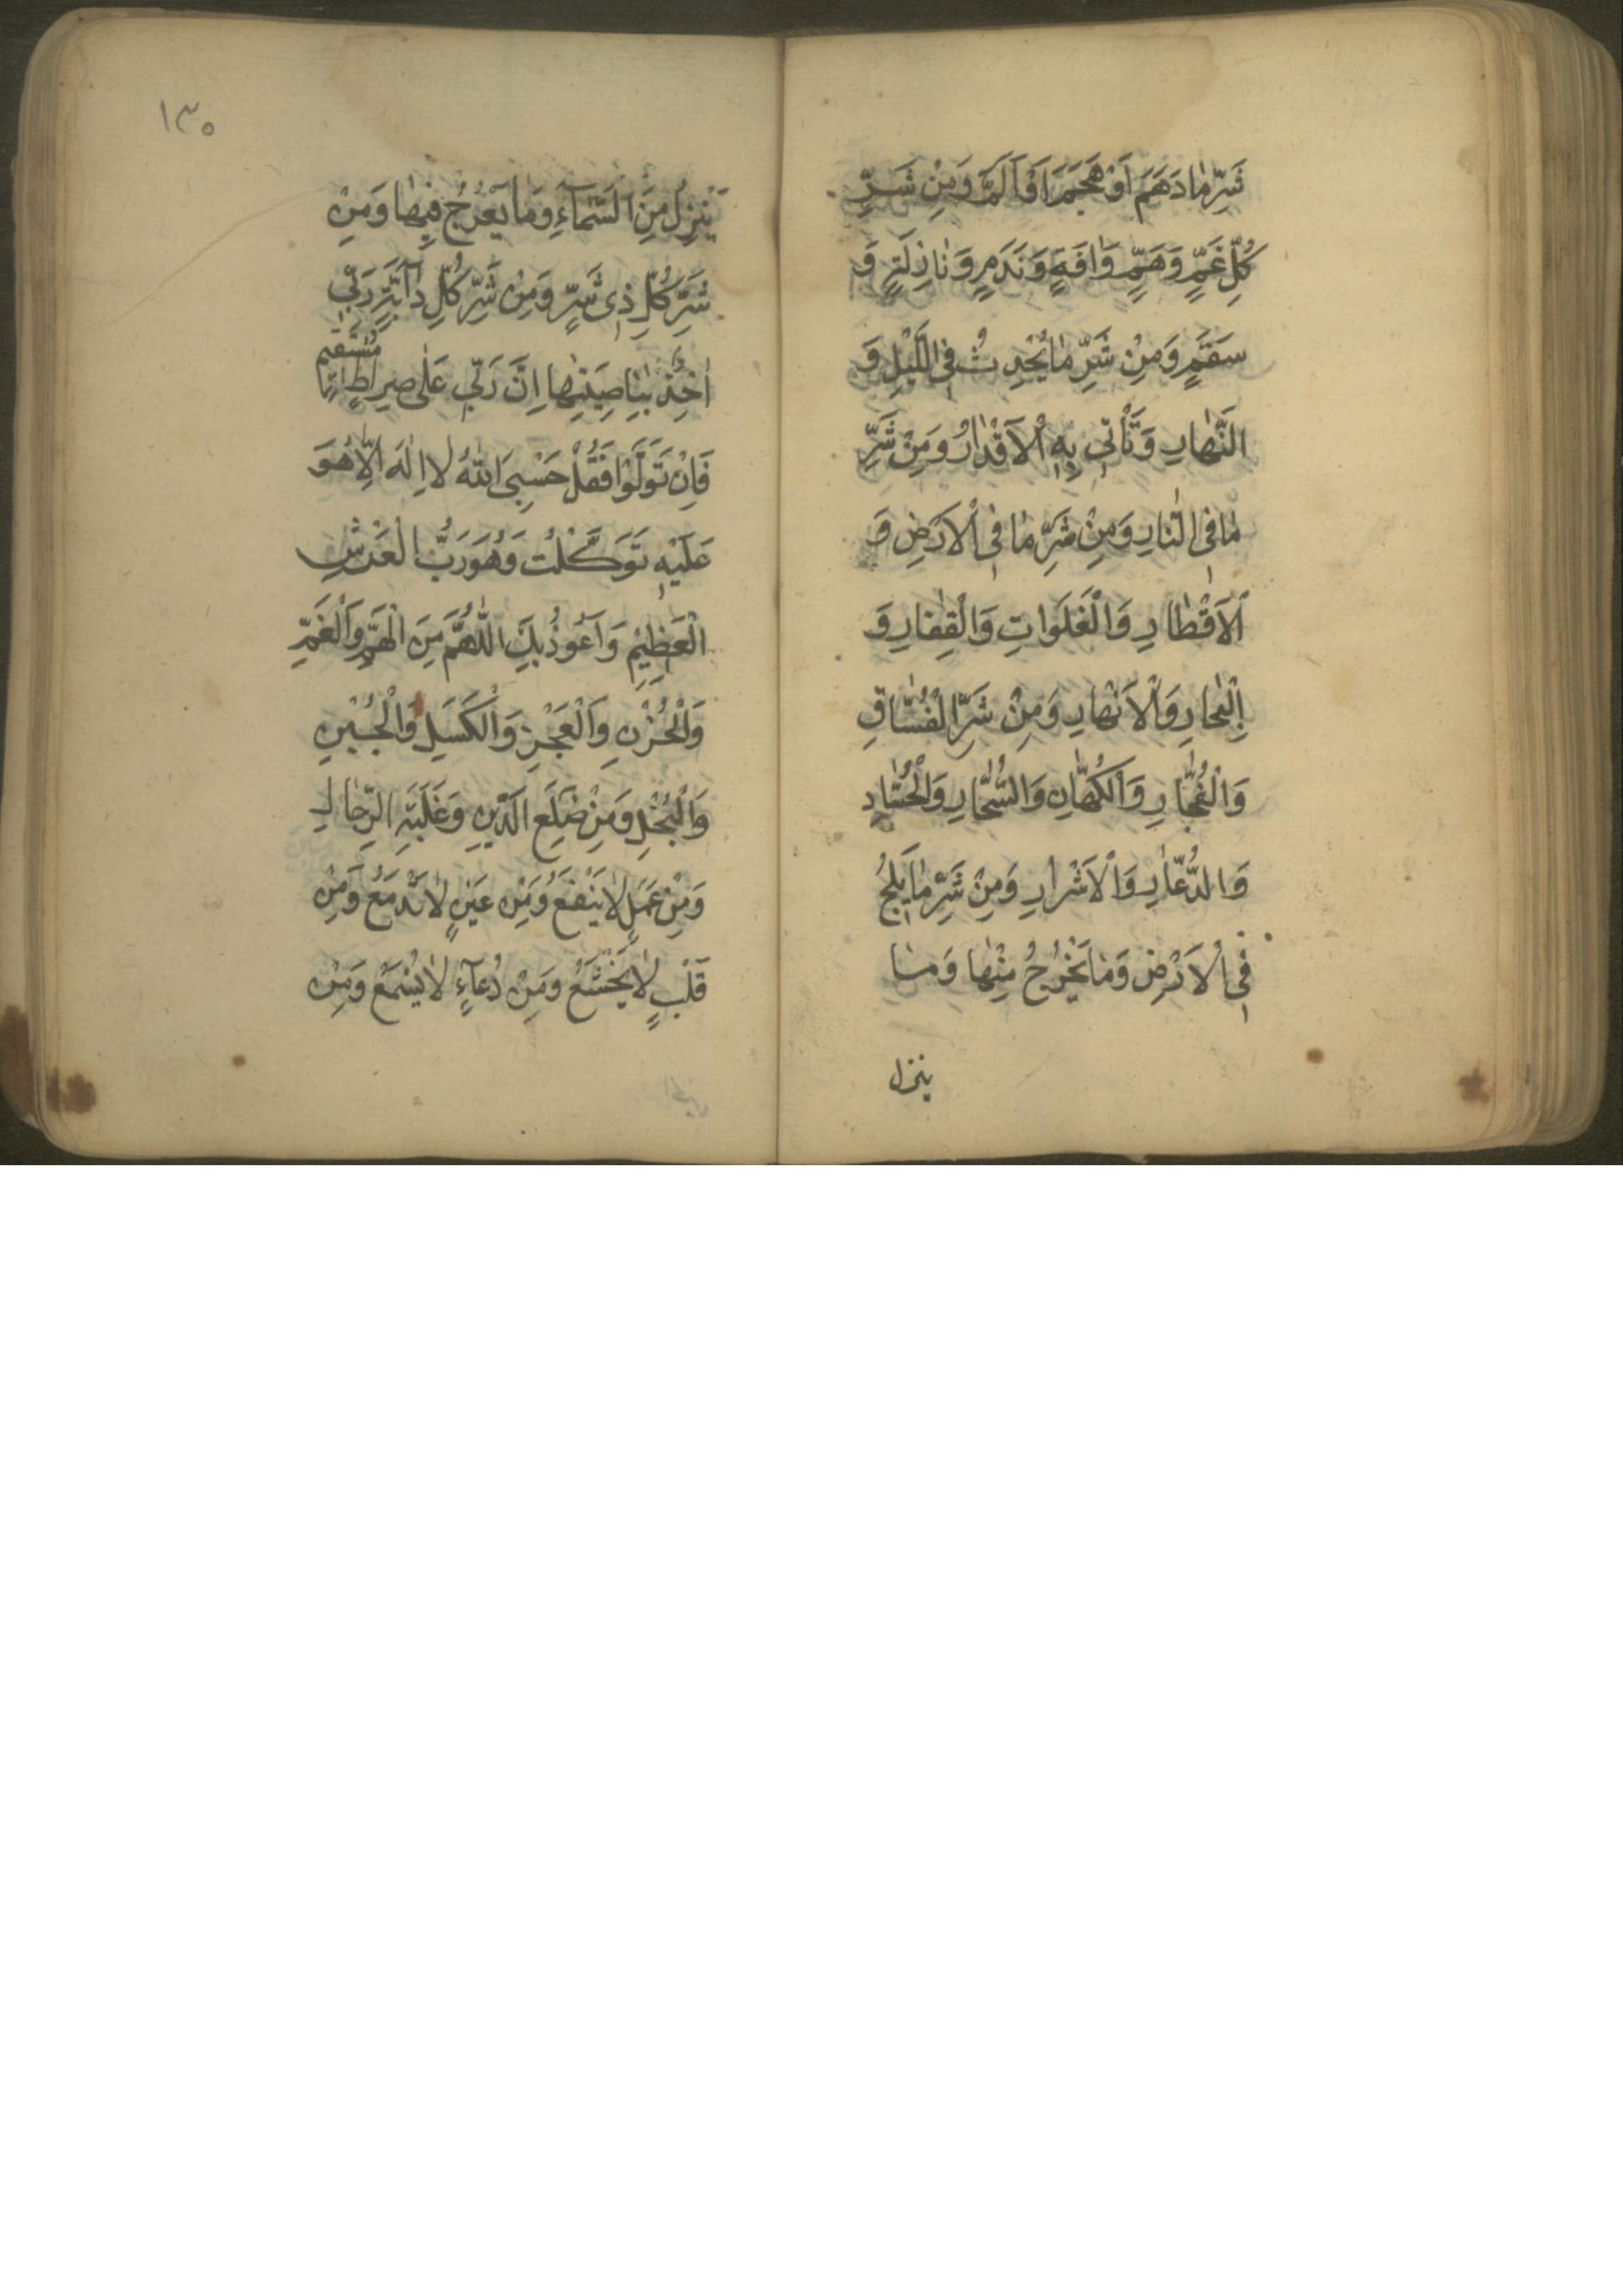 شَرِّ مٰا دَهَمَ اَوْ هَجَمَ اَوْ اَلَمَّ وَمِنْ شَرِّ
كُلِّ غَمٍّ وَهَمٍّ وَاٰفَةٍ وَنَدَمٍ وَنٰازِلَةٍ وَ
سَقَمٍ وَمِنْ شَرِّ مٰا يُحْدِثُ فِى اللَّيْلِ وَ
النَّهٰارِ وَتَأْتِى بِهِ الْاَقْدٰارُ وَمِنْ شَرِّ
مٰا فِى النّارِ وَمِنْ شَرِّ مٰا فِى الْاَرْضِ وَ
الْاَقْطٰارِ وَالْفَلَوٰاتِ وَالْقِفٰارِ وَ
الْبِحٰارِ وَالْاَنْهٰارِ وَمِنْ شَرِّ الْفُسّٰاقِ
وَالْفُجّٰارِ وَالْكُهّٰانِ وَالسُّحّٰارِ وَالْحُسّٰادِ
وَالدُّعّٰارِ وَالْاَشْرٰارِ وَمِنْ شَرِّ مٰا يَلِجُ
فِى الْاَرْضِ وَمٰا يَخْرُجُ مِنْهٰا وَمٰا
ينزل
١٣٥
يَنْزِلُ مِنَ السَّمٰآءِ وَمٰا يَعْرُجُ فِيهٰا وَمِنْ
شَرِّ كُلِّ ذِى شَرٍّ وَمِنْ شَرِّ كُلِّ دٰآبَّةٍ رَبِّى
اٰخِذٌ بِنٰاصِيَتِهٰا اِنَّ رَبِّى عَلٰى صِرٰاطٍ مُسْتَقِيمٍ
فَاِنْ تَوَلَّوْا فَقُلْ حَسْبِىَ اللهُ لٰا اِلٰهَ اِلّٰا هُوَ
عَلَيْهِ تَوَكَّلْتُ وَهُوَ رَبُّ الْعَرْشِ
الْعَظِيْمِ وَاَعُوذُ بِكَ اللّٰهُمَّ مِنَ الْهَمِّ وَالْغَمِّ
وَالْحُزْنِ وَالْعَجْزِ وَالْكَسَلِ وَالْجُبْنِ
وَالْبُخْلِ وَمِنْ ضَلَعِ الدَّيْنِ وَغَلَبَةِ الرِّجٰالِ
وَمِنْ عَمَلٍ لٰا يَنْفَعُ وَمِنْ عَيْنٍ لٰا تَدْمَعُ وَمِنْ
قَلْبٍ لٰا يَخْشَعُ وَمِنْ دُعٰآءٍ لٰا يُسْمَعُ وَمِنْ